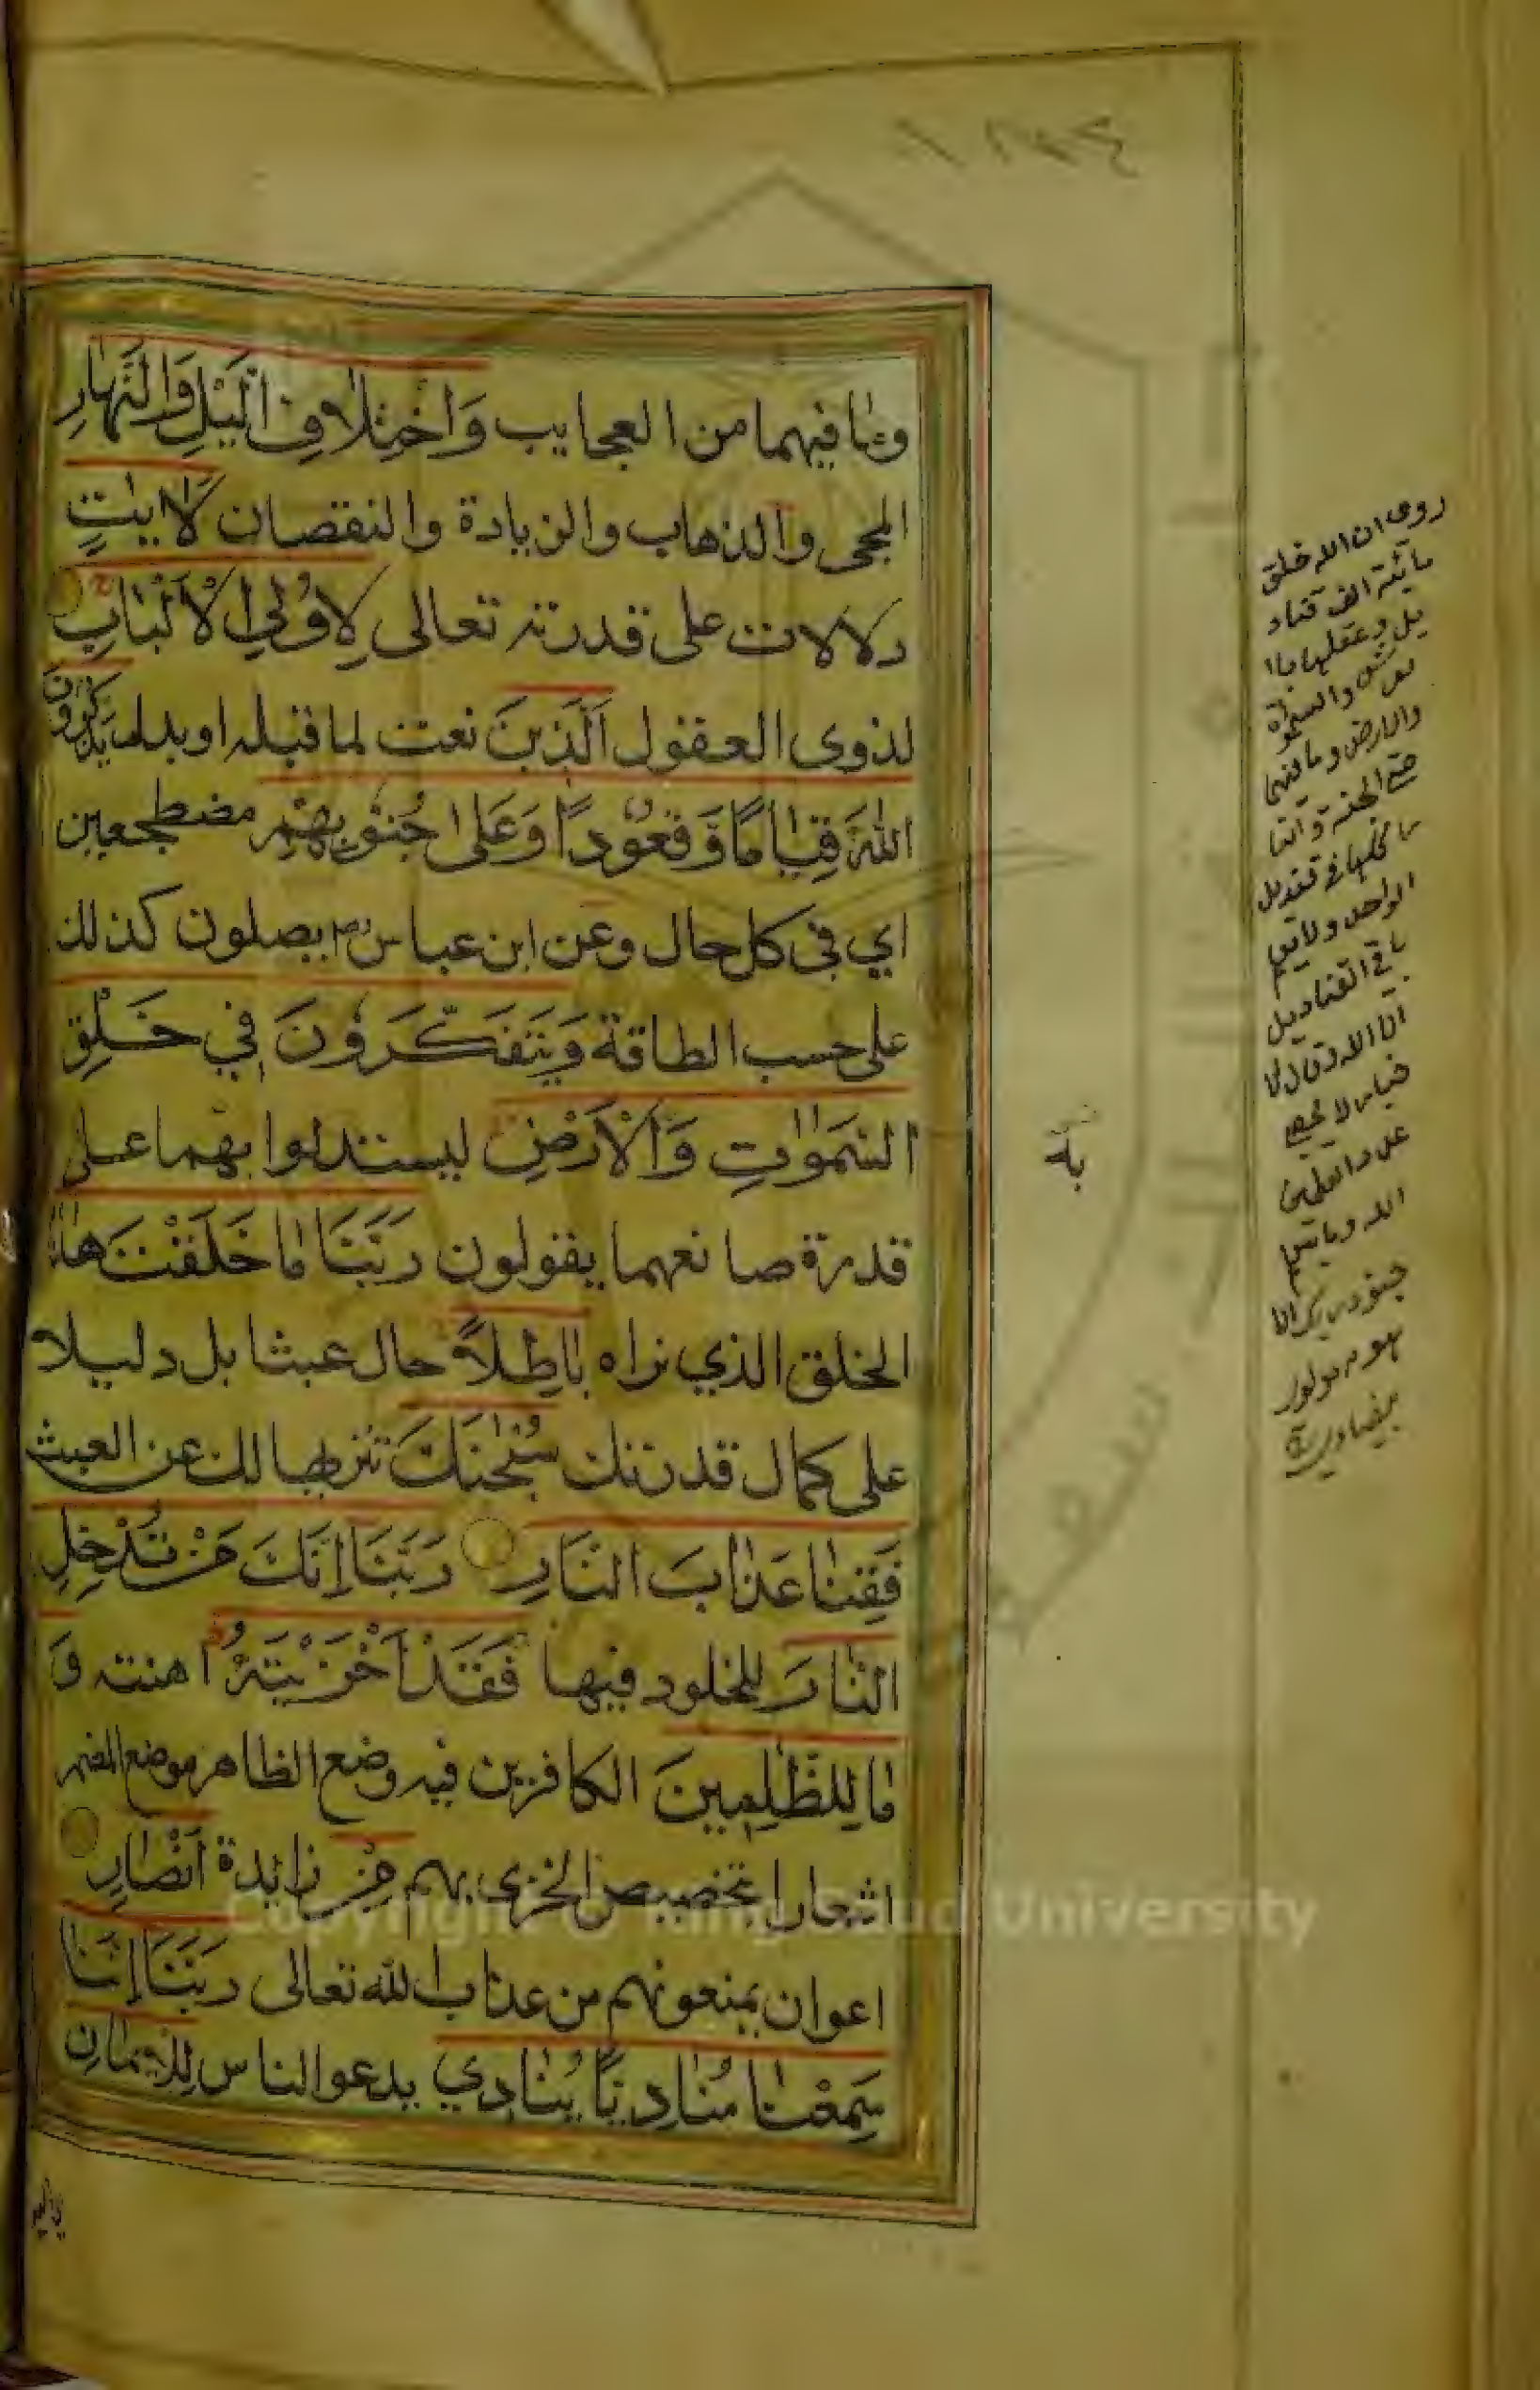 وما فيهما من العجايب وَاخْتِلَافِ الَّيْلِ وَالنَّهَارِ
المجى والذهاب والزيادة والنقصان لَاٰيٰتٍ
دلالات على قدرته تعالى لِاُولِي الْاَلْبَابِ
لذوى العقول اَلَّذِينَ نعت لما قبله او بدل يَذْكُرُونَ
اللّٰهَ قِيَامًا وَّقُعُودًا وَعَلٰى جُنُوبِهِمْ مضطجعين
اي في كل حال وعن ابن عباس رض يصلون كذلك
على حسب الطاقة وَيَتَفَكَّرُونَ فِي خَلْقِ
السَّمٰوَاتِ وَالْاَرْضِ ليستدلوا بهما على
قدرة صانعهما يقولون رَبَّنَا مَا خَلَقْتَ هٰذَا
الخلق الذي نراه بَاطِلًا حال عبثا بل دليلا
على كمال قدرتك سُبْحٰنَكَ تنزيها لك عن العبث
فَقِنَا عَذَابَ النَّارِ رَبَّنَا اِنَّكَ مَنْ تُدْخِلِ
النَّارَ للخلود فيها فَقَدْ اَخْزَيْتَهُ اهنته وَ
مَا لِلظّٰلِمِينَ الكافرين فيه وضع الظاهر موضع المضمر
اشعارا بتخصيص الخزى بهم مِنْ زايدة اَنْصَارٍ
اعوان يمنعونهم من عذاب الله تعالى رَبَّنَا اِنَّنَا
سَمِعْنَا مُنَادِيًا يُنَادِي يدعو الناس لِلْاِيمَانِ
روى ان الله خلق
مائة الف قناد
يل وعلقها باا
لعرش والسموات
والارض وما بينهما
حتى الجنة والنا
ر كلها فى قنديل
الواحد ولا يعلم
باقى القناديل
الا الله
الله وما يعلم
جنود ربك الا
هو
Copyright © King Saud University